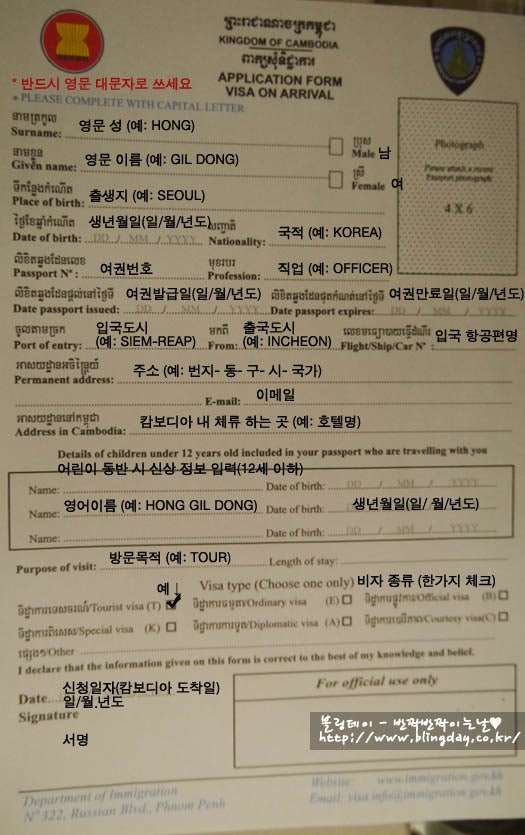 ព្រះរាជាណាចក្រកម្ពុជា
KINGDOM OF CAMBODIA
ពាក្យសុំទិដ្ឋាការ
APPLICATION FORM
VISA ON ARRIVAL
* 반드시 영문 대문자로 쓰세요
* PLEASE COMPLETE WITH CAPITAL LETTER
នាមត្រកូល
Surname: 영문 성 (예: HONG)
ប្រុស
Male 남
នាមខ្លួន
Given name: 영문 이름 (예: GIL DONG)
ស្រី
Female 여
Photograph
Please attach a recent
Passport photograph
4 X 6
ទីកន្លែងកំណើត
Place of birth: 출생지 (예: SEOUL)
ថ្ងៃខែឆ្នាំកំណើត 생년월일(일/월/년도) សញ្ជាតិ
Date of birth: DD / MM / YYYY Nationality: 국적 (예: KOREA)
លិខិតឆ្លងដែនលេខ មុខរបរ
Passport Nº : 여권번호 Profession: 직업 (예: OFFICER)
លិខិតឆ្លងដែនផ្តល់នៅថ្ងៃទី 여권발급일(일/월/년도) លិខិតឆ្លងដែនផុតកំណត់នៅថ្ងៃទី 여권만료일(일/월/년도)
Date passport issued: DD / MM / YYYY Date passport expires: DD / MM / YYYY
ចូលតាមច្រក 입국도시 មកពី 출국도시 លេខមធ្យោបាយធ្វើដំណើរ
Port of entry: (예: SIEM-REAP) From: (예: INCHEON) Flight/Ship/Car Nº 입국 항공편명
អាសយដ្ឋានអចិន្ត្រៃយ៍
Permanent address: 주소 (예: 번지- 동- 구- 시- 국가)
E-mail: 이메일
អាសយដ្ឋាននៅកម្ពុជា
Address in Cambodia: 캄보디아 내 체류 하는 곳 (예: 호텔명)
Details of children under 12 years old included in your passport who are travelling with you
어린이 동반 시 신상 정보 입력(12세 이하)
Name: Date of birth: DD / MM / YYYY
Name: 영어이름 (예: HONG GIL DONG) Date of birth: 생년월일(일/ 월/년도)
Name: Date of birth: DD / MM / YYYY
Purpose of visit: 방문목적 (예: TOUR) Length of stay:
예↓ Visa type (Choose one only) 비자 종류 (한가지 체크)
ទិដ្ឋាការទេសចរណ៍/Tourist visa (T) ទិដ្ឋាការធម្មតា/Ordinary visa (E) ទិដ្ឋាការផ្លូវការ/Official visa (B)
ទិដ្ឋាការពិសេស/Special visa (K) ទិដ្ឋាការការទូត/Diplomatic visa (A) ទិដ្ឋាការគួរសម/Courtesy visa(C)
ផ្សេងៗ/Other
I declare that the information given on this form is correct to the best of my knowledge and belief.
Date 신청일자(캄보디아 도착일)
일/월.년도
For official use only
Signature
서명
블링데이 - 반짝반짝이는날♥
http://www.blingday.co.kr/
Department of Immigration
Nº 322, Russian Blvd., Phnom Penh
Website: www.immigration.gov.kh
Email: visa.info@immigration.gov.kh